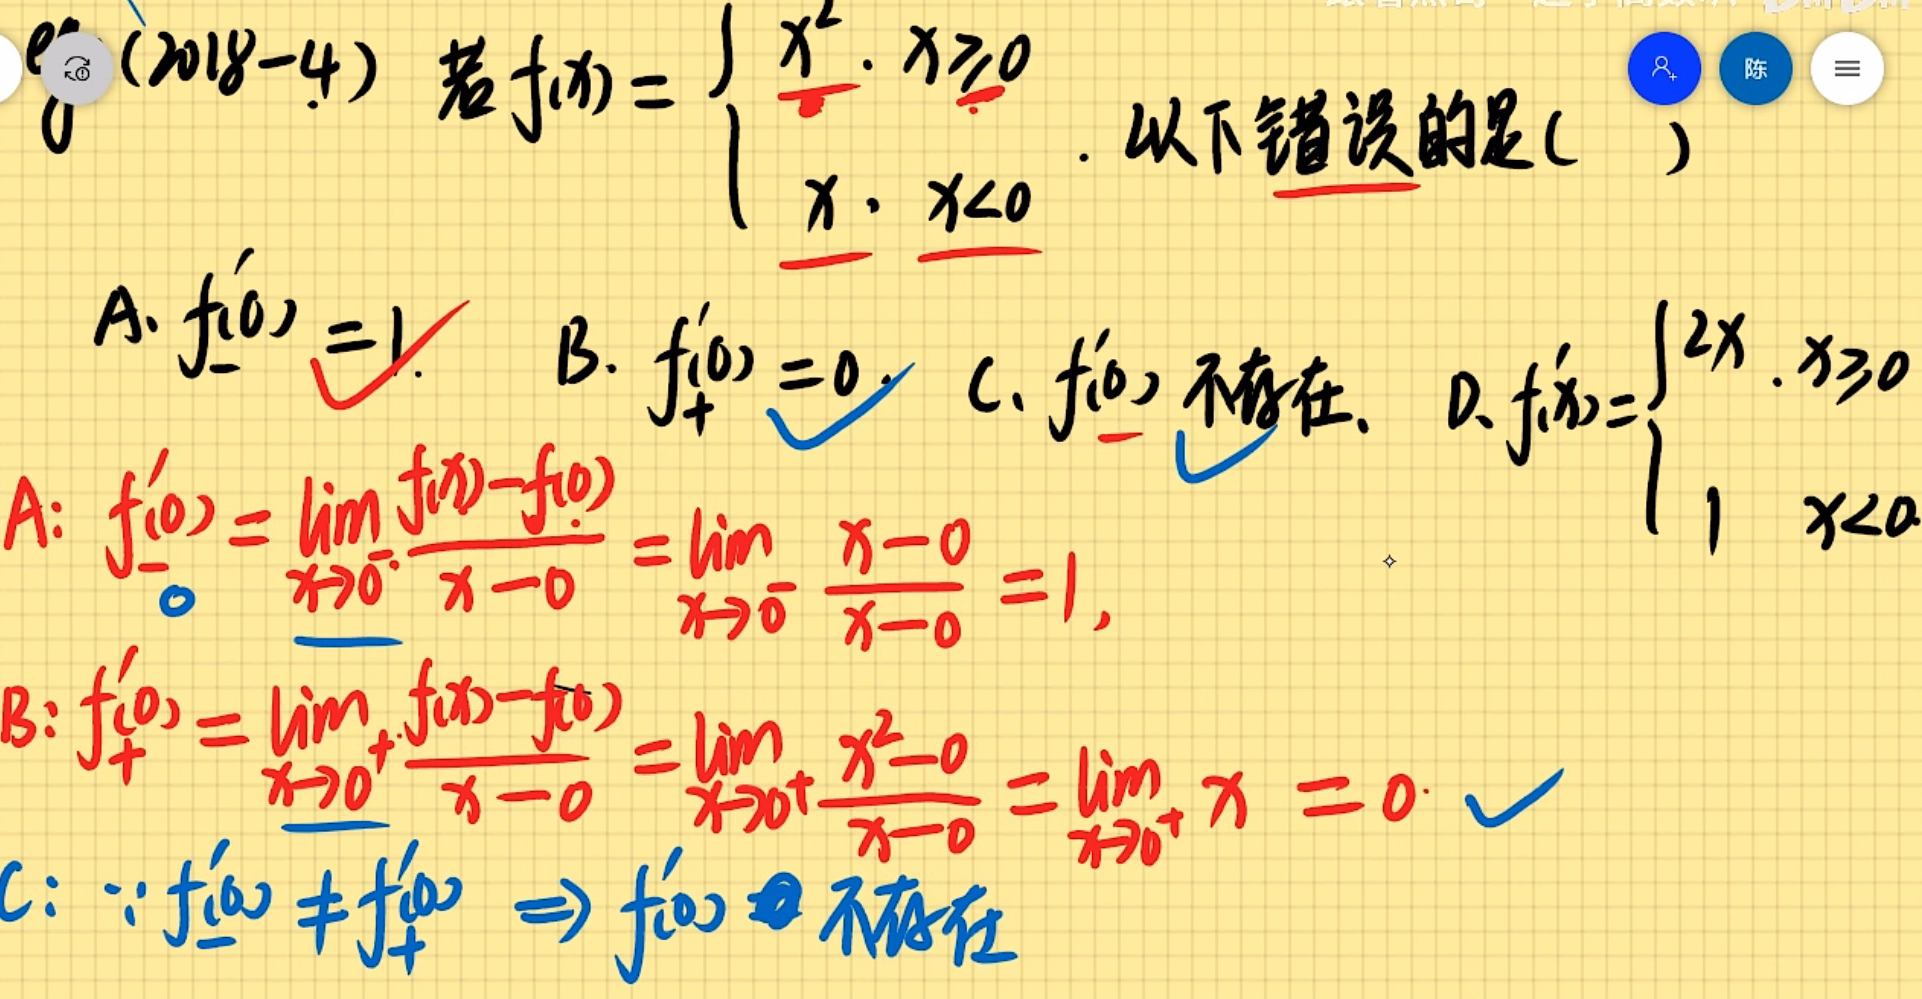 eg (2018-4) 若 f(x) = { x², x≥0
x, x<0 . 以下错误的是( )
A. f₋'(0) = 1. B. f₊'(0) = 0. C. f'(0) 不存在. D. f'(x) = { 2x, x≥0
1 x<0.
A: f₋'(0) = lim x→0⁻ (f(x)-f(0))/(x-0) = lim x→0⁻ (x-0)/(x-0) = 1,
0
B: f₊'(0) = lim x→0⁺ (f(x)-f(0))/(x-0) = lim x→0⁺ (x²-0)/(x-0) = lim x→0⁺ x = 0.
C: ∵ f₋'(0) ≠ f₊'(0) ⇒ f'(0) 不存在
陈